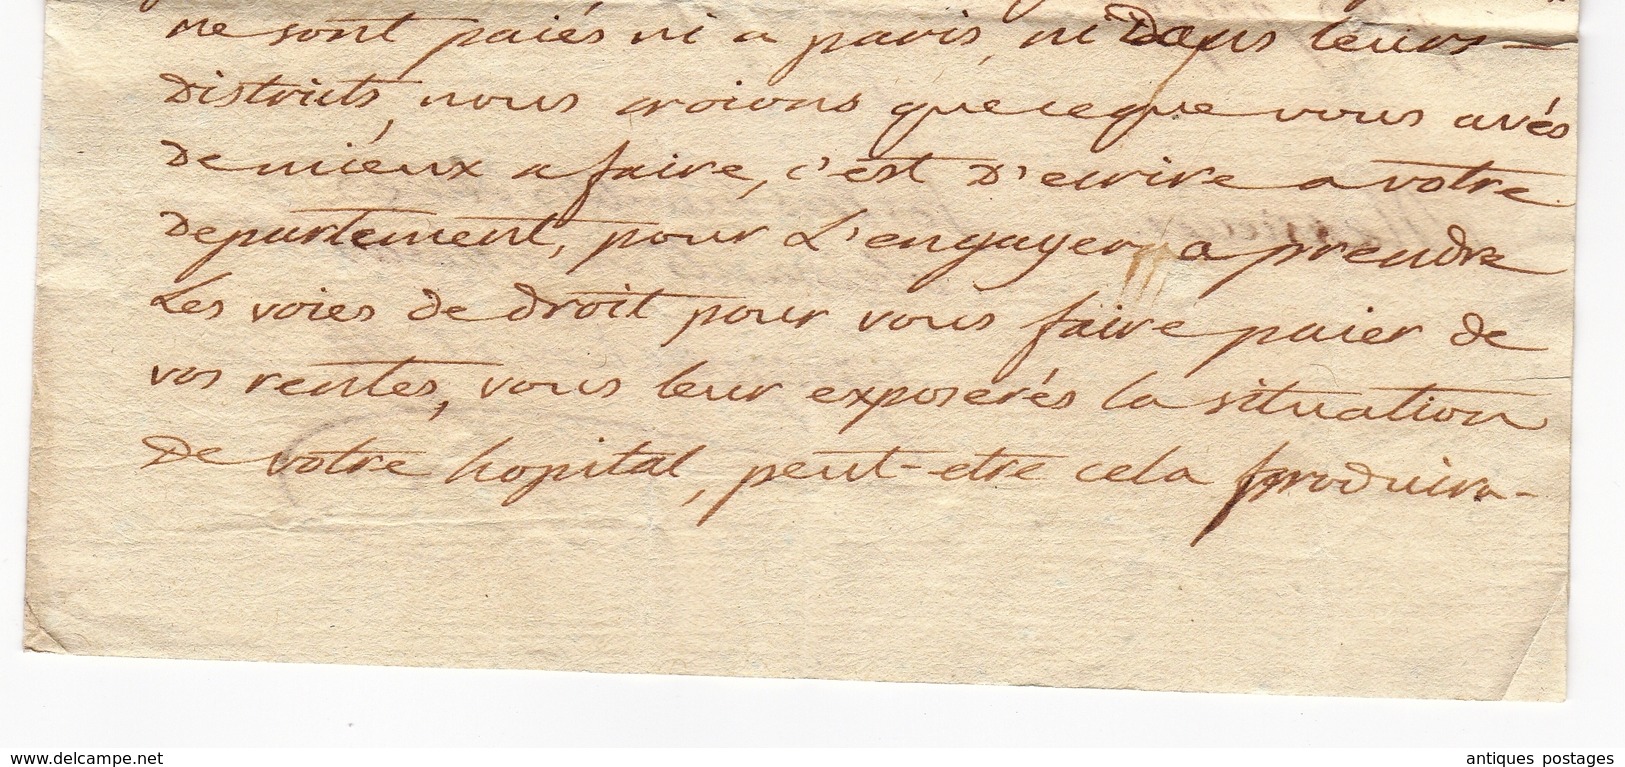 ne sont païés ni a paris, ni Dans leurs
Districts, nous croions que ce que vous avés
De mieux a faire, c'est D'ecrire a votre
Departement, pour L'engager a prendre
Les voies de droit pour vous faire paier de
vos rentes, vous leur exposerés la situation
De votre hopital, peut-etre cela produira-
www.delcampe.net
antiques postages